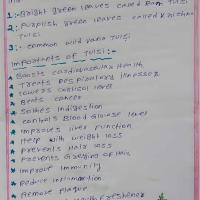 1:- Bright green leaves called Ram Tulsi
2:- Purplish green leaves called Krishna
Tulsi
3:- common wild vana Tulsi
Importants of Tulsi:-
* Boosts cardiovascular Health
* Treats Respiratory Illnesses
* Lowers Cortisol level
* Beats cancer
* Solves Indigestion
* control's Blood Glucose level
* Improves liver function
* Help with weight loss
* Prevents Hair loss
* Prevents Greying of Hair
* Improve Immunity
* Reduce Inflammation
* Remove Plaque
Freshener